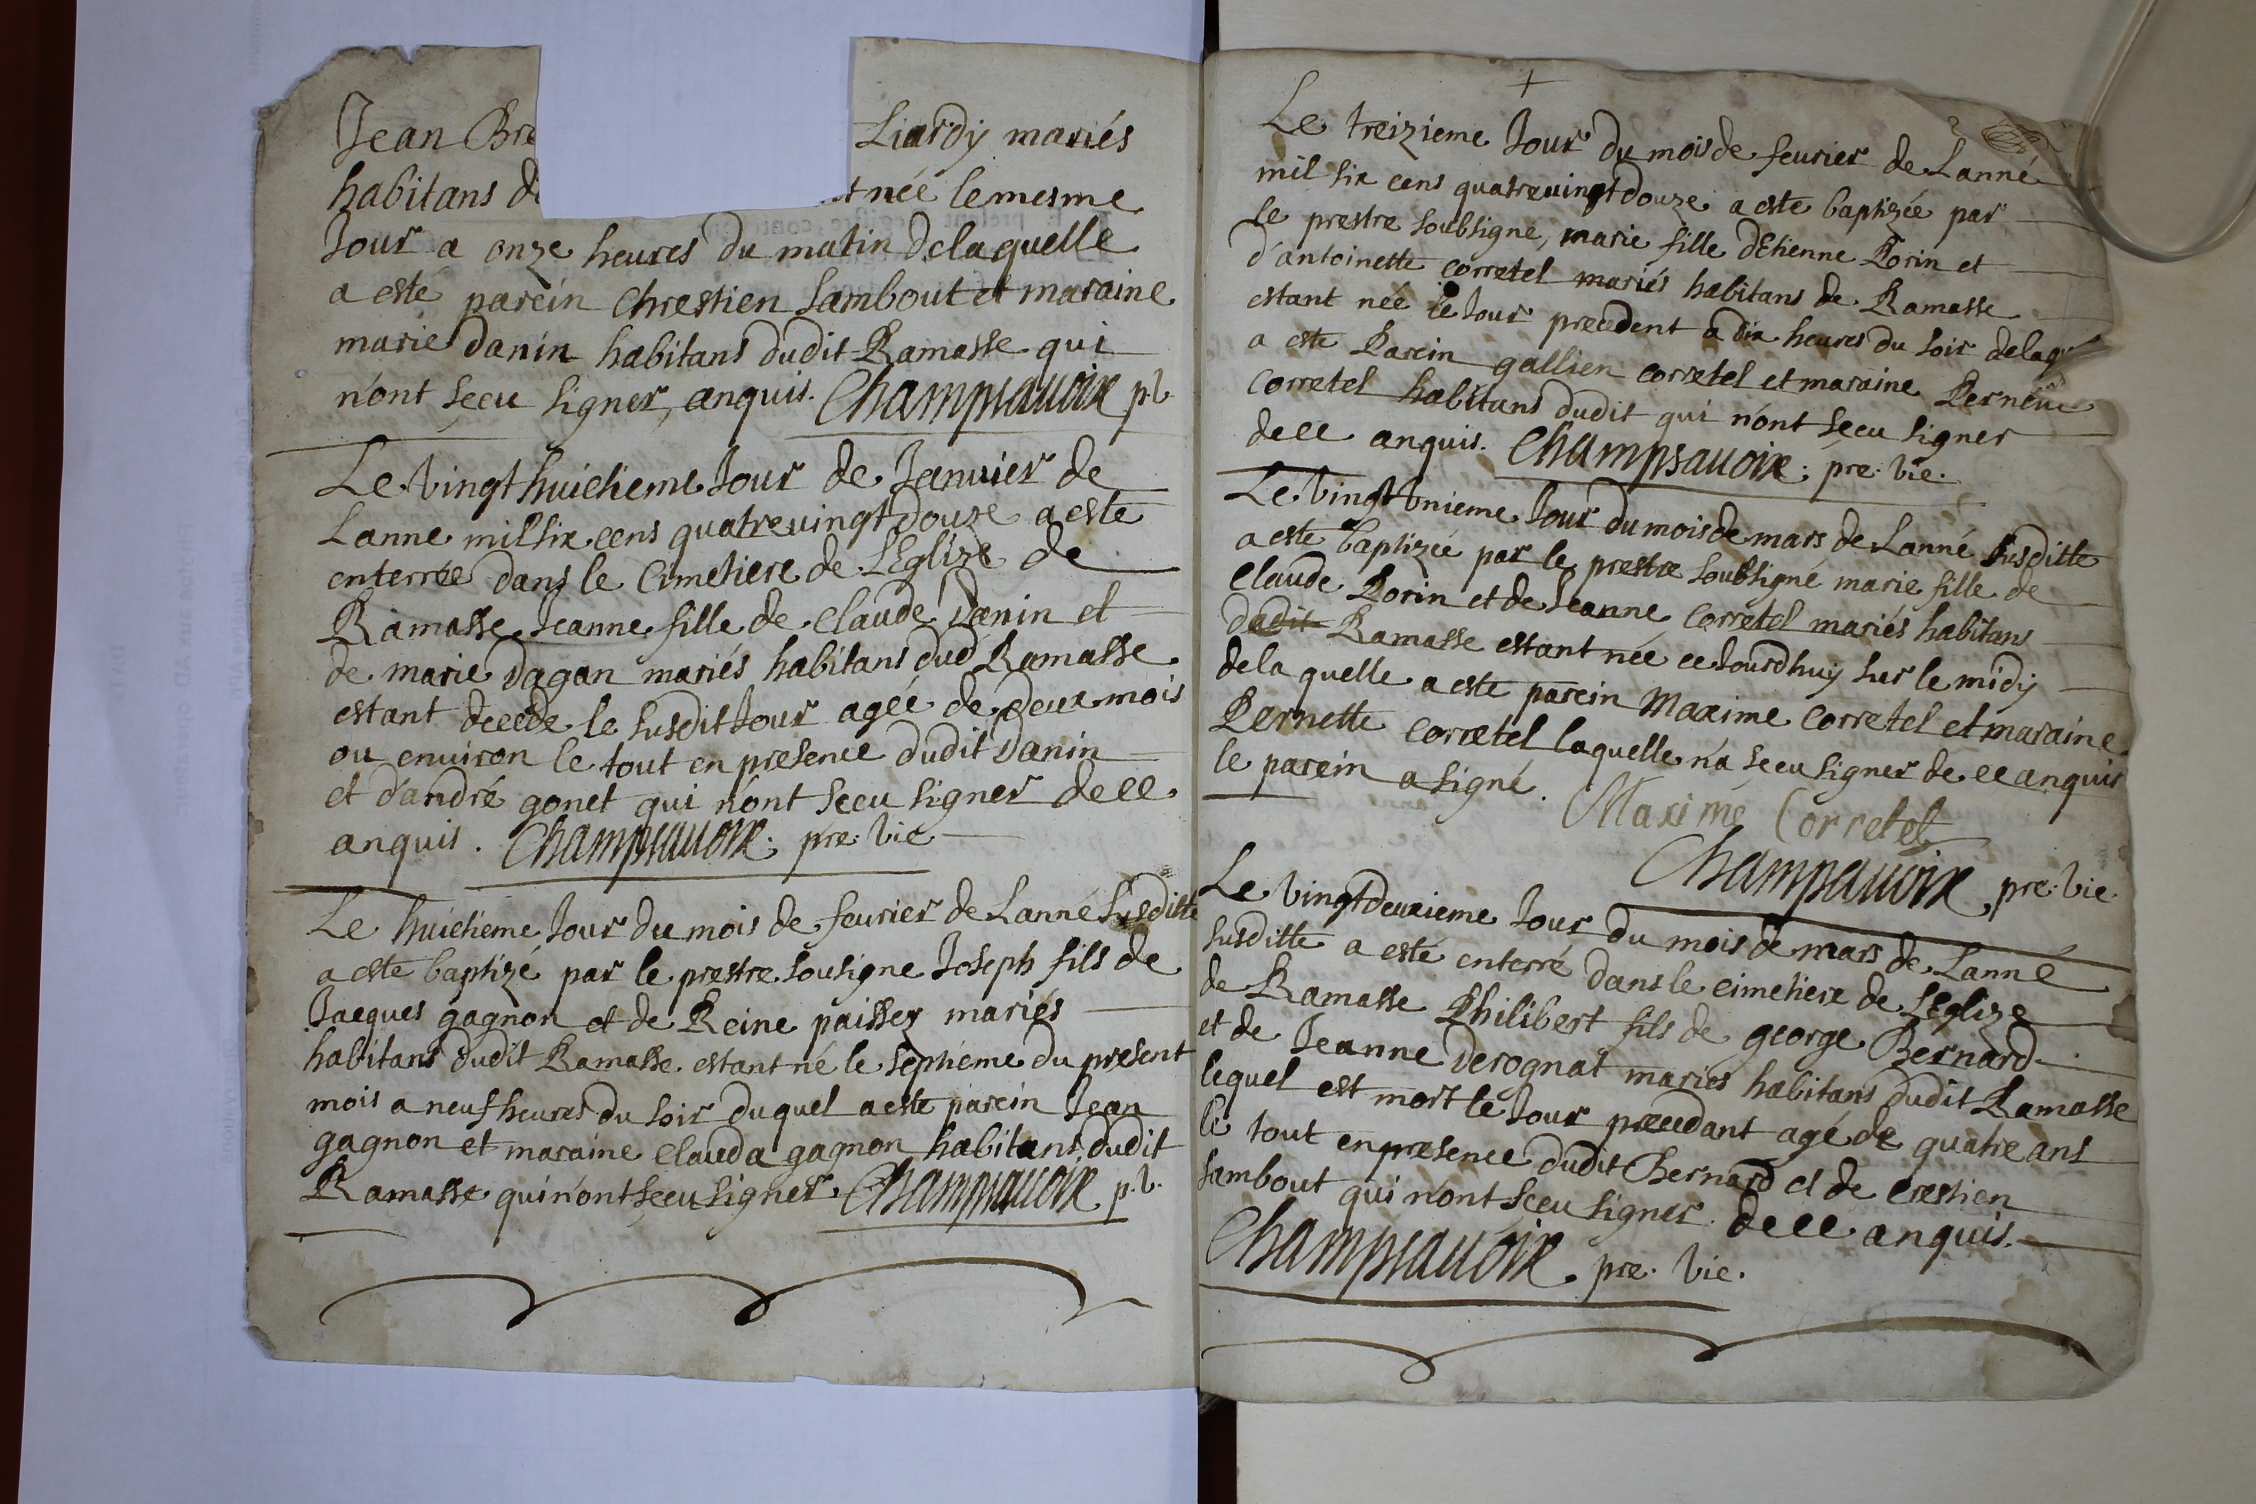 Jean Bre Liardy mariés
habitans d née le mesme
Jour a onze heures du matin de laquelle
a esté parein Chrestien Sambout et maraine
marie Danin habitans dudit Ramasse qui
n'ont sçeu signer, anquis. Champsauoix p.v.
Le vingt huictieme Jour de Januier de
Lanne mil six cens quatre uingt douze a esté
enterrée dans le Cimetiere de L'Eglize de
Ramasse Jeanne fille de Claude Danin et
de marie Dagan mariés habitans dud Ramasse
estant decede le susdit Jour agée de deux mois
ou enuiron le tout en presence dudit Danin
et d'andré gonet qui n'ont sceu signer de ce
anquis. Champsauoix pre: vic
Le huictieme Jour du mois de feurier de Lanné susditte
a este baptizé par le prestre sousigne Joseph fils de
Jacques gagnon et de Reine paissey mariés
habitans dudit Ramasse estant né le septieme du present
mois a neuf heures du soir duquel a este parein Jean
gagnon et maraine Clauda gagnon habitans dudit
Ramasse qui n'ont sçeu signer Champsauoix p.v.
Le treizieme Jour du mois de feurier de Lanné
mil six cens quatreuingt douze a esté baptizée par
le prestre soubsigné, marie fille d'Etienne Porin et
d'antoinette Corretel mariés habitans de Ramasse
estant née le Jour precedent a dix heures du soir de laq
a esté Parein gallien Corretel et maraine Pernette
Corretel habitans dudit qui n'ont sçeu signer
de ce anquis. Champsauoix: pre: vic.
Le vingt vnieme Jour du mois de mars de Lanné susditte
a este baptizée par le prestre soubsigné marie fille de
Claude Porin et de Jeanne Corretel mariés habitans
dudit Ramasse estant née ce Jourdhuy sur le midy
de la quelle a este parein Maxime Corretel et maraine
Pernette Corretel laquelle n'a sceu signer de ce anquis
le parein a signé.
Maxime Corretel
Champsauoix pre: vic
Le vingt deuxieme Jour du mois de mars de Lanné
susditte a esté enterré dans le cimetiere de L'eglize
de Ramasse Philibert fils de george Bernard
et de Jeanne Derognat mariés habitans dudit Ramasse
lequel est mort le Jour precedant agé de quatre ans
le tout en presence dudit Bernard et de Crestien
Sambout qui n'ont sceu signer de ce anquis.
Champsauoix pre: vic.